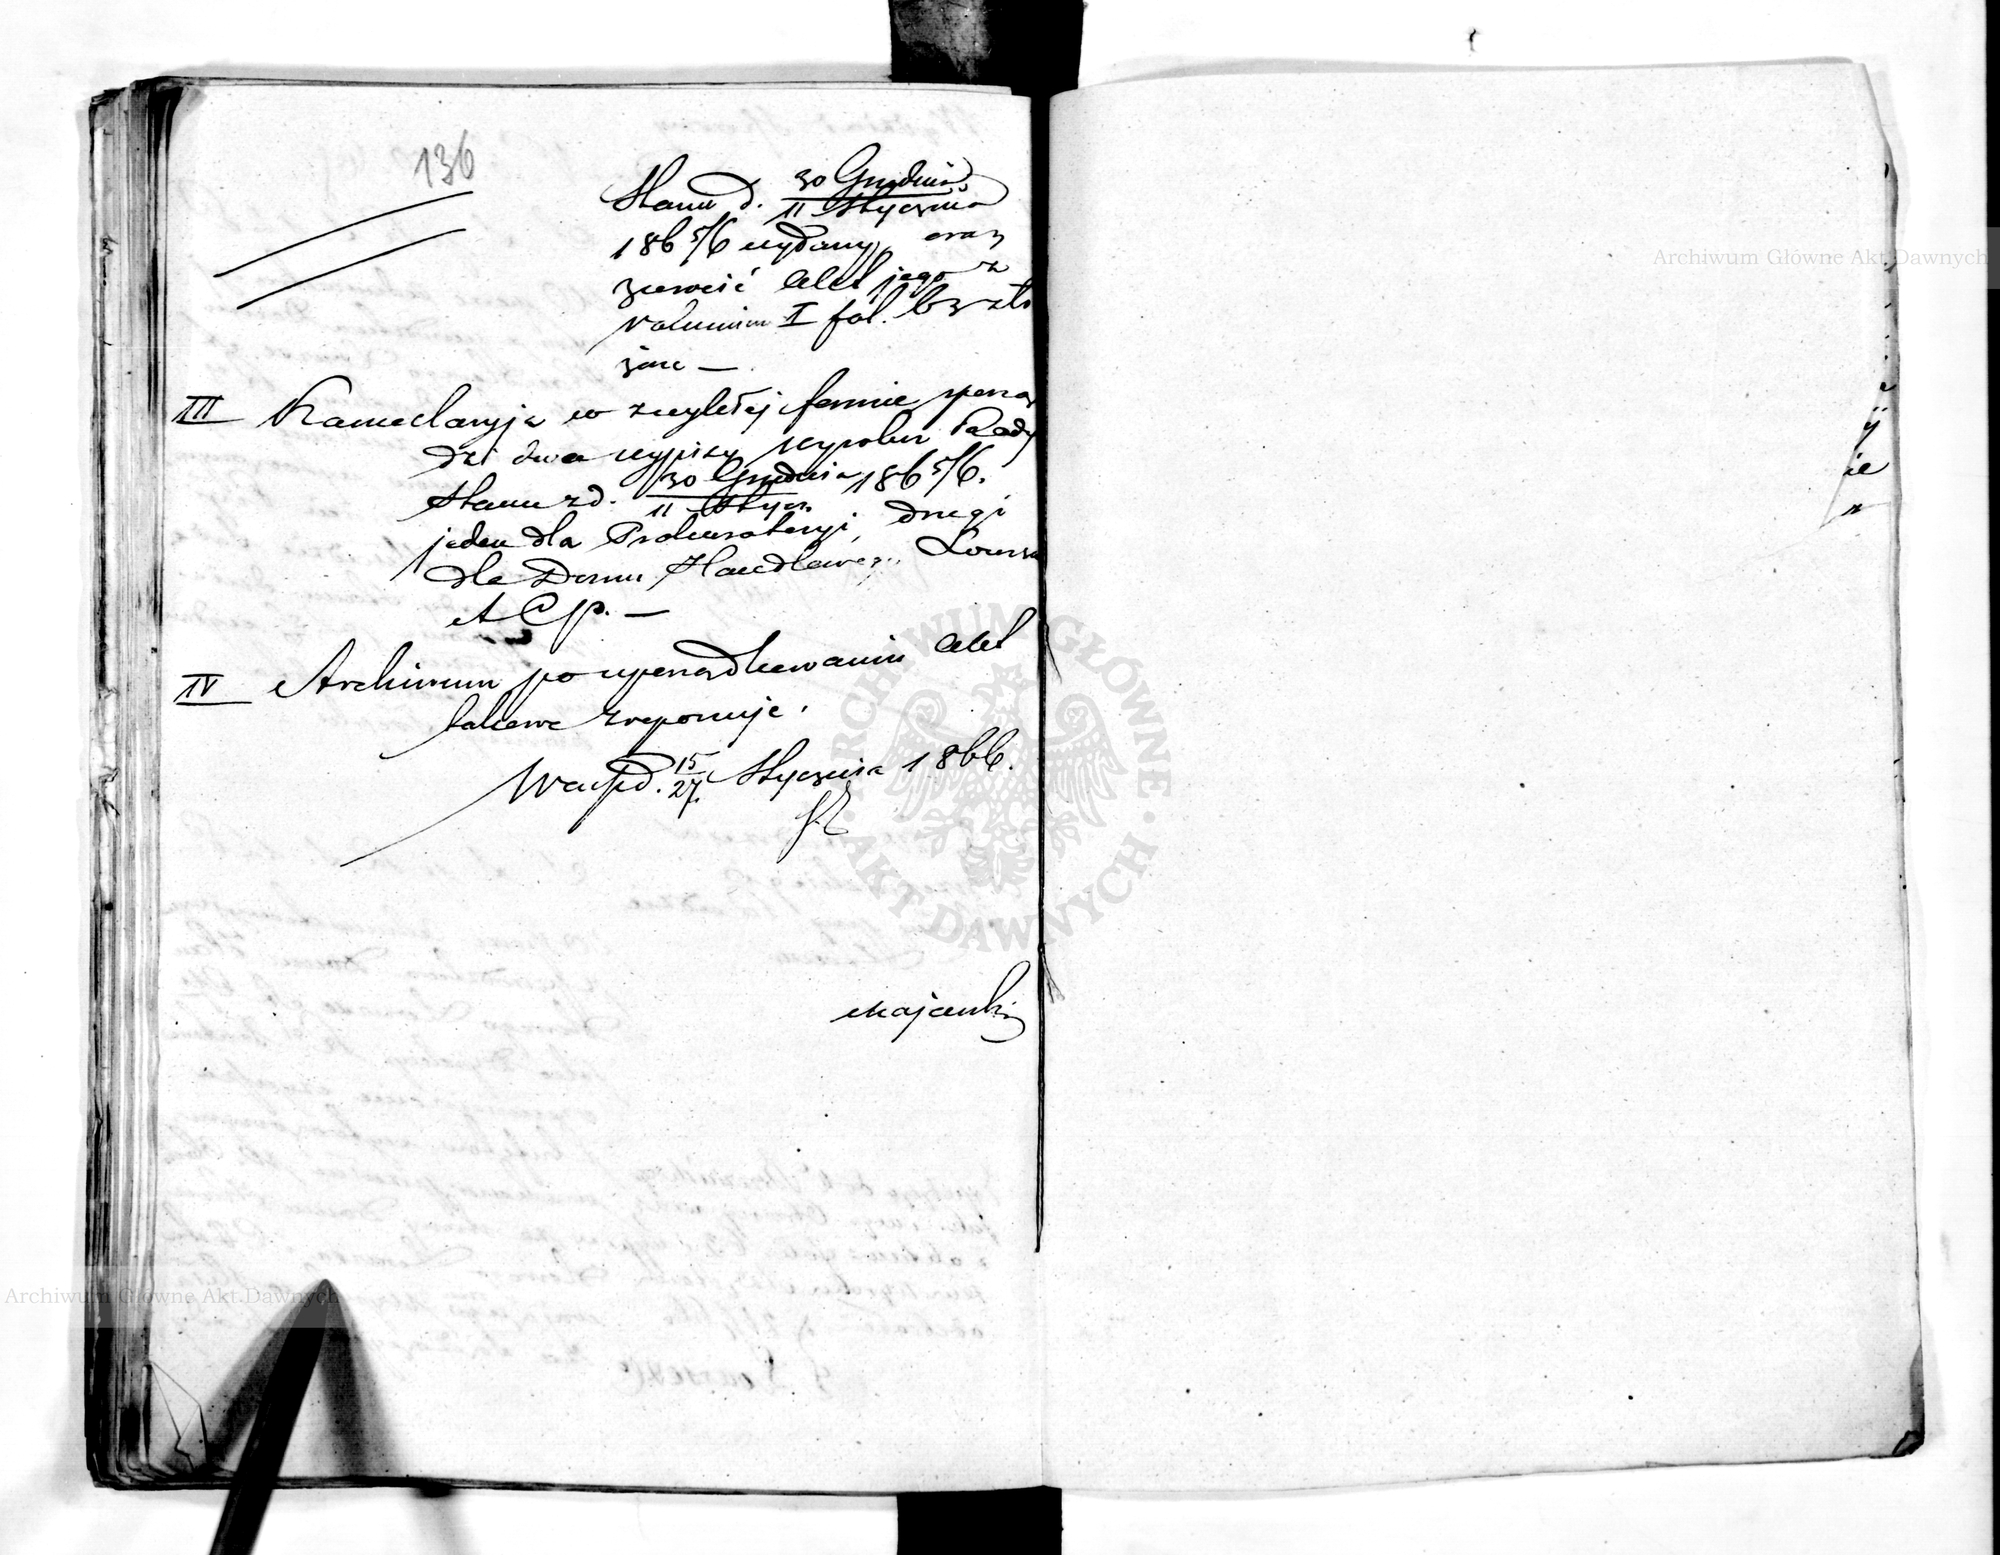 136
Stanu d. 30 Grudnia
11 Stycznia
186 5/6 wydany, oraz
zwrócić akt jego z
volumin I fol. zło
żone —
III Kancelaryja w zwykłej formie sporzą
dzi dwa wypisy wyroku Rady
Stanu z d. 30 Grudnia 186 5/6.
11 Stycz.
jeden dla Prokuratoryi, drugi
dla Domu Handlowego
et Cp. —
IV Archiwum po uporządkowaniu akt
takowe zreponuje.
d. 15/27 Stycznia 1866.
Majewski
ARCHIWUM GŁÓWNE
AKT DAWNYCH
Archiwum Główne Akt Dawnych
Archiwum Główne Akt Dawnych